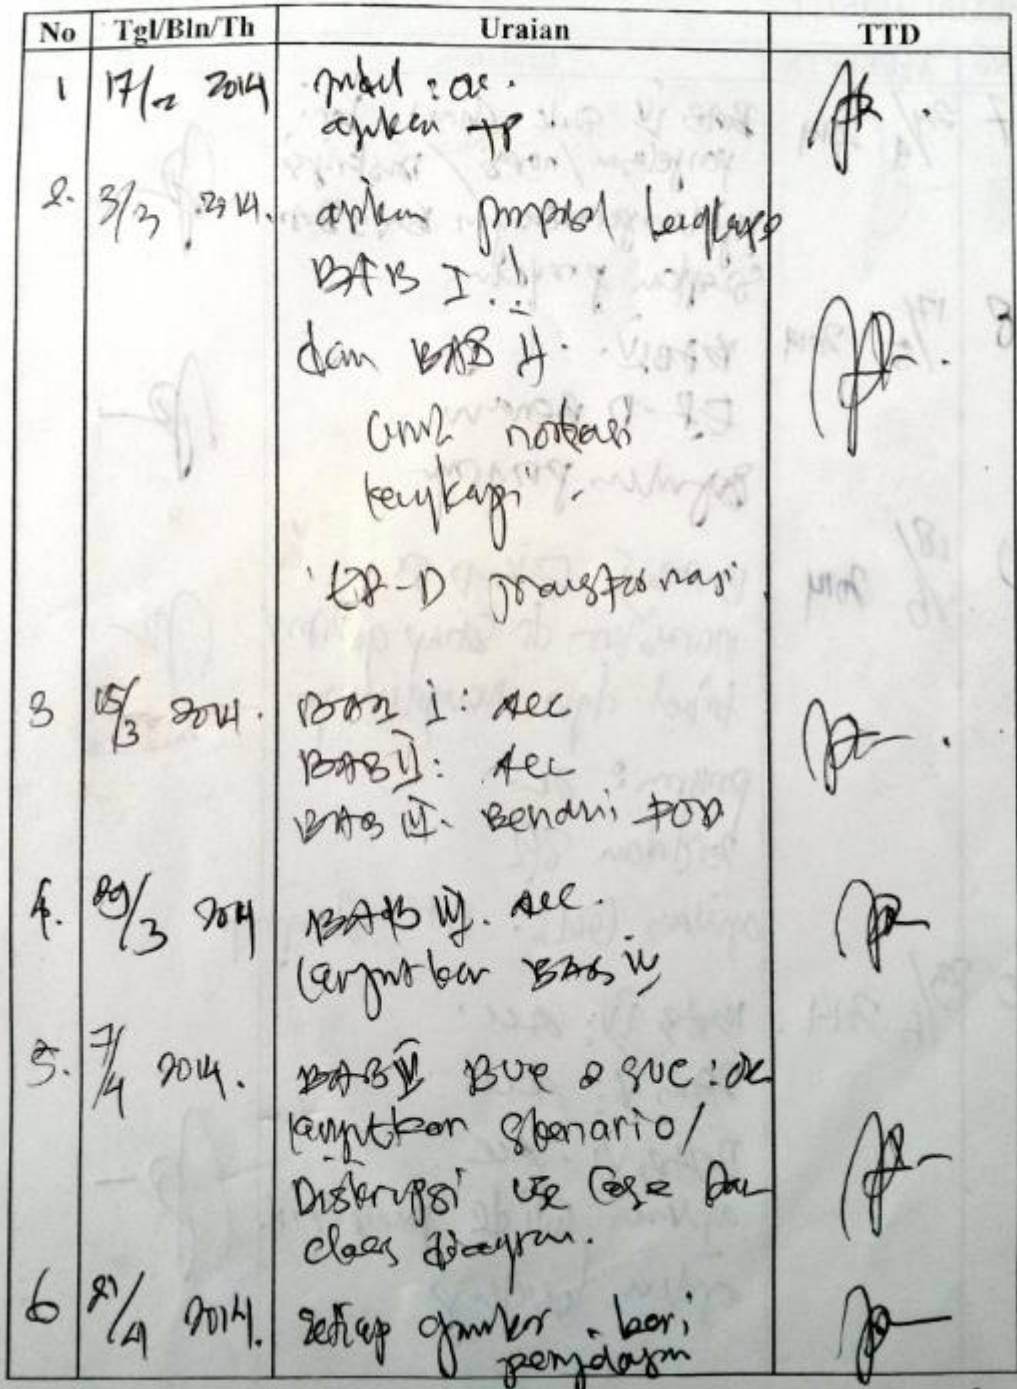 No Tgl/Bln/Th Uraian TTD
1 17/2 2014 judul : oc.
ajukan
2. 3/3 2014. ajukan proposal lengkap
BAB I.!
dan BAB II.
notasi
lengkapi
ER-D transformasi
3 15/3 2014. BAB I: ACC
BAB II: ACC
BAB III. Benahi
4. 29/3 2014 BAB III. ACC.
lanjutkan BAB IV
5. 7/4 2014. BAB IV BUC & SUC : ok
lanjutkan Skenario/
Diskripsi Use Case dan
class diagram.
6 21/4 2014. setiap gambar . beri
penjelasan